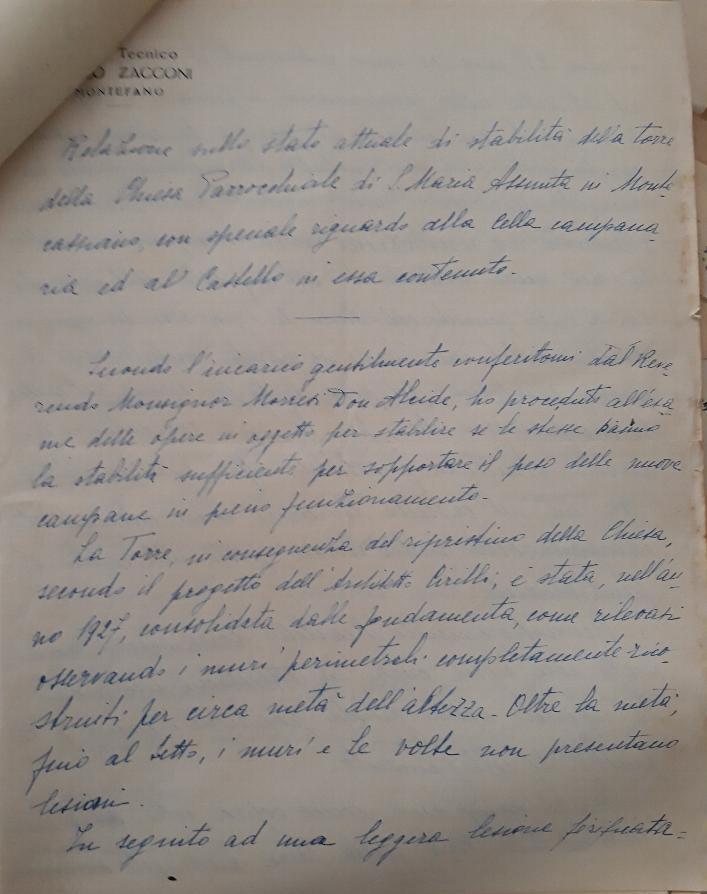 Tecnico
ZACCONI
MONTEFANO
Relazione sullo stato attuale di stabilità della torre
della Chiesa Parrocchiale di S. Maria Assunta in Monte
cassiano, con speciale riguardo alla Cella campana
ria ed al Castello in essa contenuto.-
Secondo l'incarico gentilmente conferitomi dal Reve
rendo Monsignor Don Alcide, ho proceduto all'esa
me delle opere in oggetto per stabilire se le stesse hanno
la stabilità sufficiente per sopportare il peso delle nuove
campane in pieno funzionamento.-
La Torre, in conseguenza del ripristino della Chiesa,
secondo il progetto dell'Architetto Cirilli, è stata, nell'an
no 1927, consolidata dalle fondamenta, come rilevasi
osservando i muri perimetrali completamente rico-
struiti per circa metà dell'altezza.- Oltre la metà,
fino al tetto, i muri e le volte non presentano
lesioni.
In seguito ad una leggera lesione verificata=